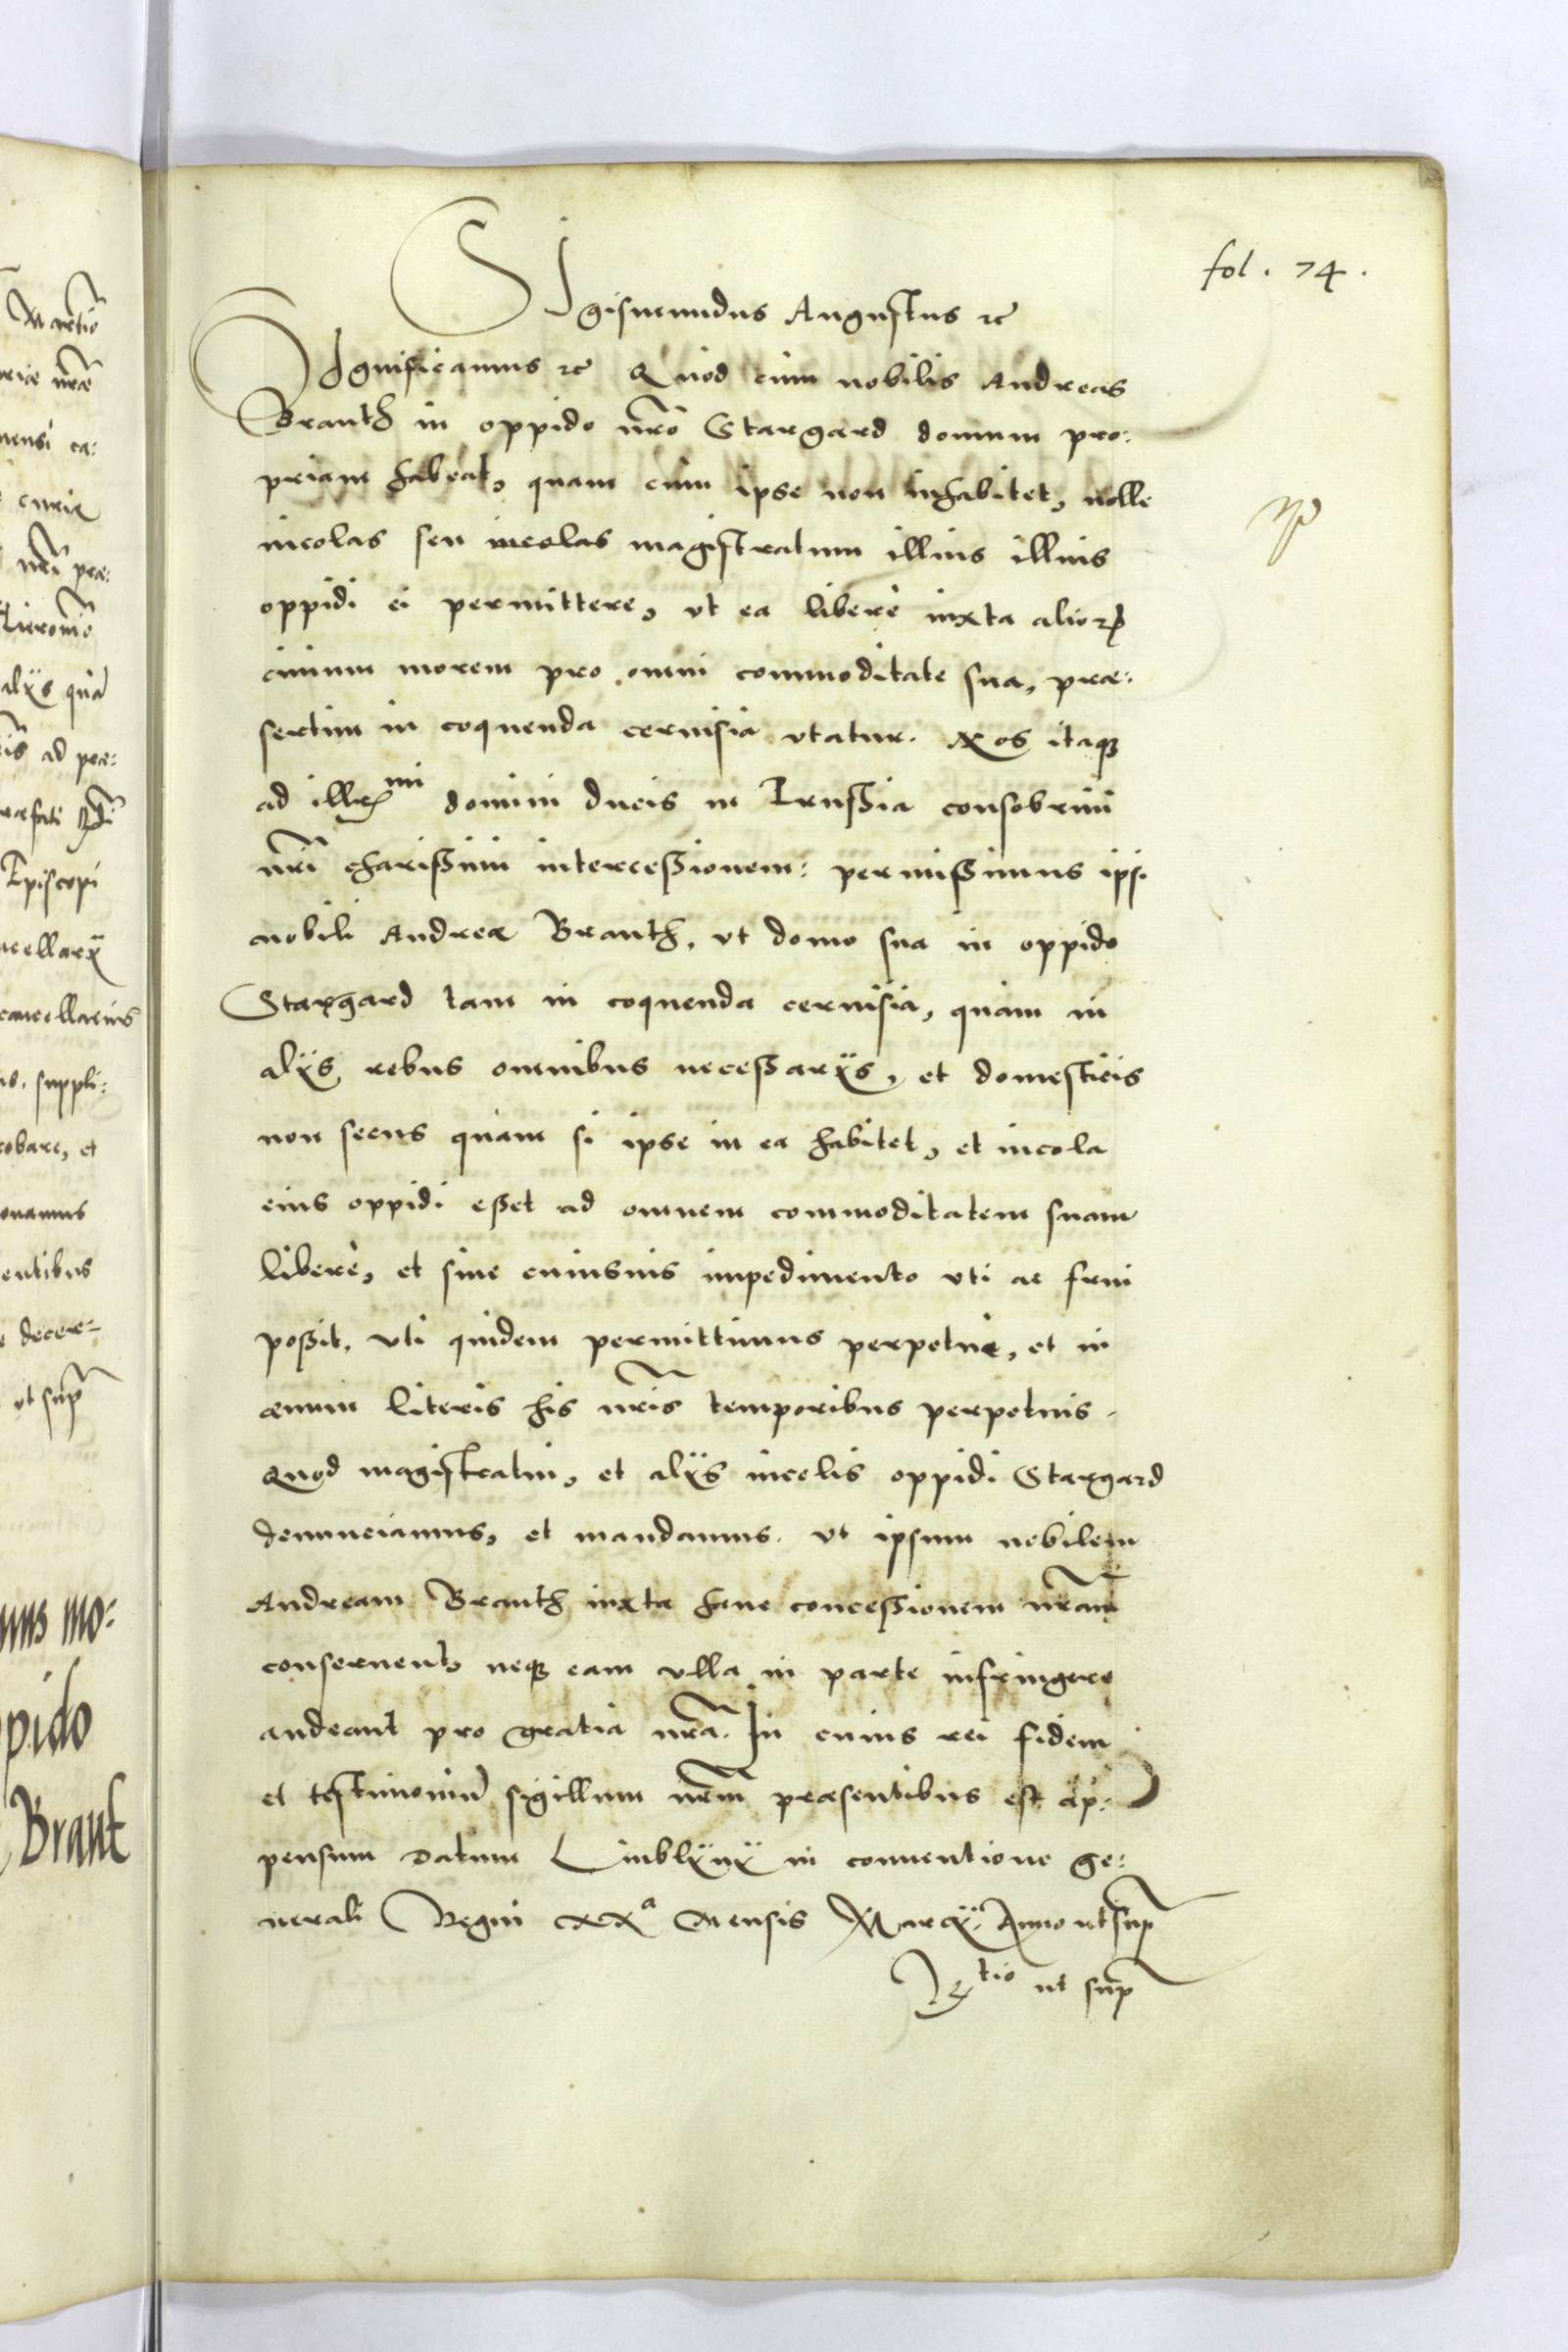 fol. 74.
SIgismundus Augustus etc
SIgnificamus etc Quod cum nobilis Andreas
Branth in oppido nro Stargard domum pro:
priam habeat, quam cum ipse non inhabitet, nolle
incolas seu incolas magistratum illius illius
oppidi ei permittere, vt ea liberè iuxta alior
ciuium morem pro omni commoditate sua, præ:
sertim in coquenda ceruisia vtatur. Nos itaq
ad illris mi domini ducis in Prussia consobrini
nri charissimi intercessionem: permissimus ipsi
nobili Andreæ Branth, vt domo sua in oppido
Stargard tam in coquenda ceruisia, quàm in
alÿs rebus omnibus necessarÿs, et domesticis
non secus quàm si ipse in ea habitet, et incola
eius oppidi esset ad omnem commoditatem suam
liberè, et sine cuiusuis impedimento vti ac frui
possit, vti quidem permittimus perpetuè, et in
æuum literis his nris temporibus perpetuis.
Quod magistratui, et alÿs incolis oppidi Stargard
denunciamus, et mandamus. vt ipsum nobilem
Andream Branth iuxta hanc concessionem nram
conseruent, neq eam vlla in parte infringere
audeant pro gratia nra. In cuius rei fidem
et testimoniu sigillum nrm præsentibus est ap:
pensum Datum Liublÿnÿ in conuentione ge:
nerali Regni XXa Mensis Marcÿ. Anno ut sup
Rtio ut sup
Martio
riæ nræ
mensi ca:
curiæ
nri præ:
Hieronimo
alÿs quā
ad præ:
Episcopi
cellarÿ
cancellarius
suppli:
robare, et
onamus
entibus
decer=
ut sup
mo:
pido
Brant